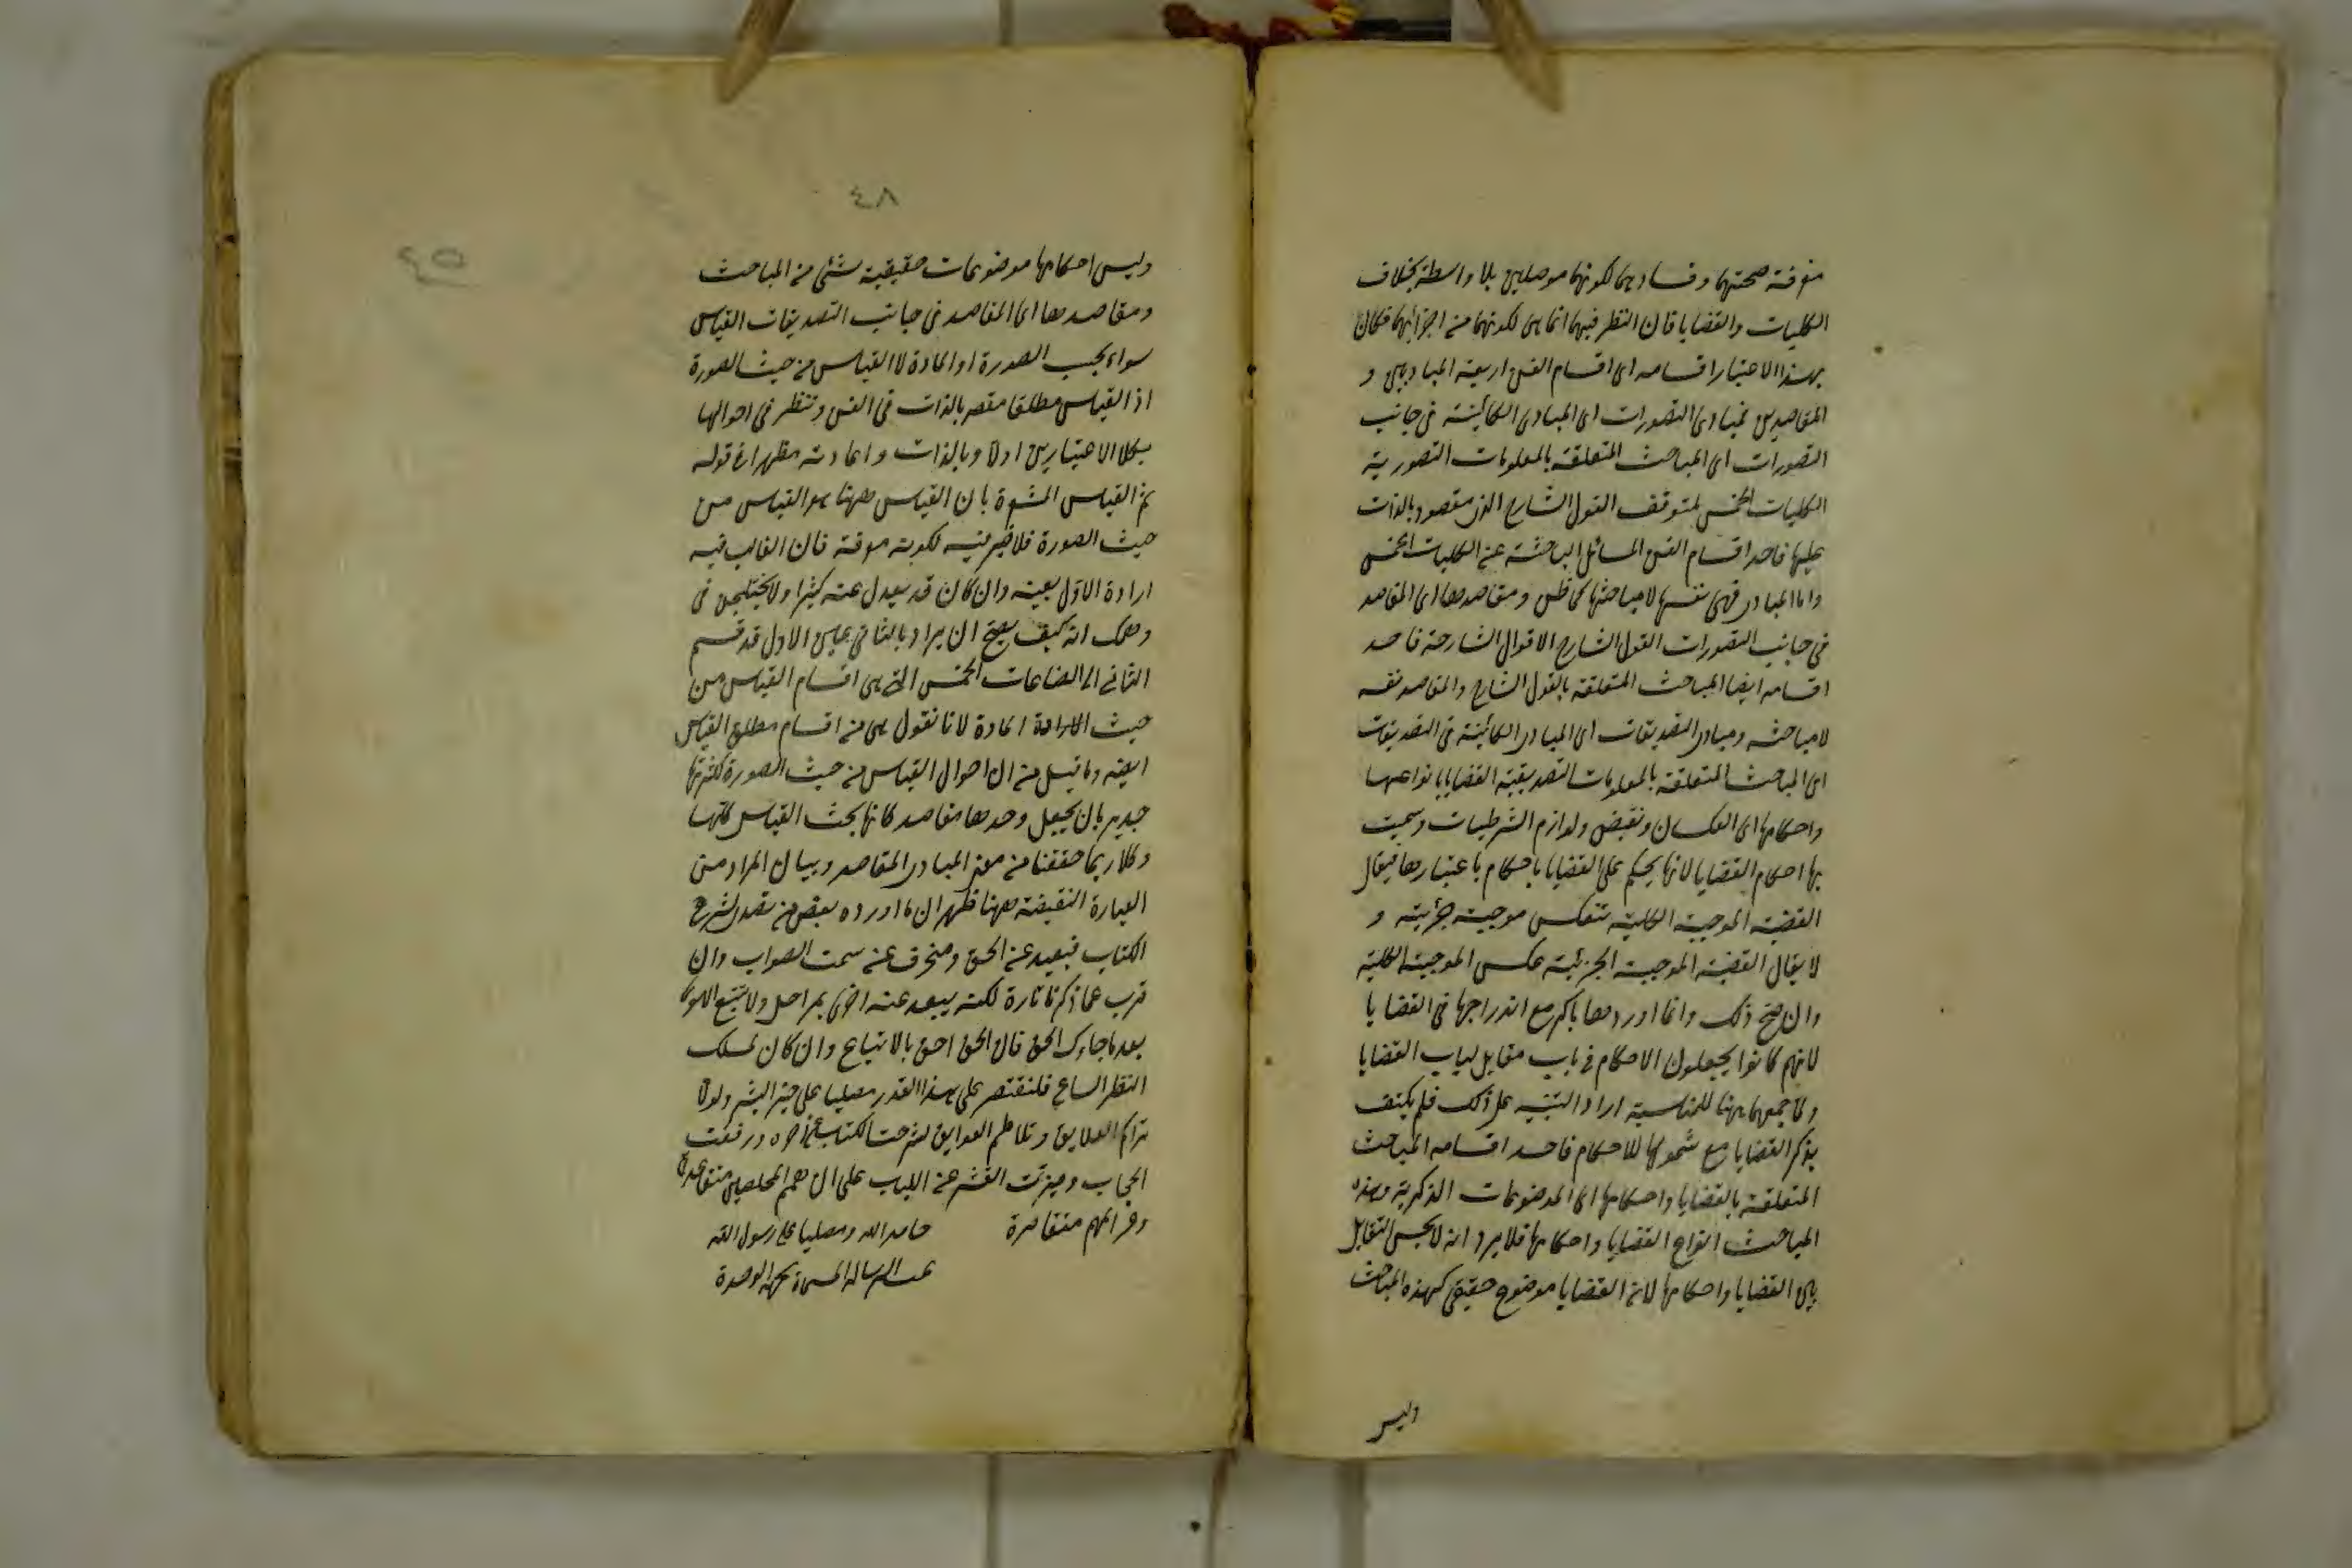 معرفة صحتهما وفسادهما لكونهما موصلين بلا واسطة بخلاف
الكليات والقضايا فان النظر فيهما انما هى لكونهما من اجزائهما فكان
بهذا الاعتبار اقسامه اى اقسام الفن اربعة المباديين و
المقاصدين فمبادى التصورات اى المبادى الكائنة فى جانب
التصورات اى المباحث المتعلقة بالمعلومات التصورية
الكليات الخمس لتوقف القول الشارح الذى مقصود بالذات
عليها فاحد اقسام الفن المسائل الباحثة عن الكليات الخمس
واما المبادى فهى نفسها لا مباحثها كما ظن ومقاصدها اى المقاصد
فى جانب التصورات القول الشارح الاقوال الشارحة فاحد
اقسامه ايضا المباحث المتعلقة بالقول الشارح والمقاصد نفسه
لا مباحثه ومبادى التصديقات اى المبادى الكائنة فى التصديقات
اى المباحث المتعلقة بالمعلومات التصديقية القضايا بانواعها
واحكامها اى العكسان ونقيض ولوازم الشرطيات وسميت
بها احكام القضايا لانها يحكم على القضايا باحكام باعتبارها فيقال
القضية الموجبة الكلية تنعكس موجبة جزئية و
لا يقال القضية الموجبة الجزئية عكس الموجبة الكلية
وان صح ذلك وانما اوردها بالذكر مع اندراجها فى القضايا
لانهم كانوا يجعلون الاحكام فى باب مقابل لباب القضايا
ولما جمعهما ههنا للمناسبة اراد التنبيه على ذلك فلم يكتف
بذكر القضايا مع شمولها للاحكام فاحد اقسامه المباحث
المتعلقة بالقضايا واحكامها اى الموضوعات الذكرية وهذه
المباحث انواع القضايا واحكامها فلا يرد انه لا يحسن التقابل
بين القضايا واحكامها لان القضايا موضوع حقيقى لهذه المباحث
وليس
٤٨
٤٥
وليس احكامها موضوعات حقيقية لشئ من المباحث
ومقاصدها اى المقاصد فى جانب التصديقات القياس
سواء بحسب الصورة او المادة لا القياس من حيث الصورة
اذ القياس مطلقا مقصر بالذات فى الفن وننظر فى احوالها
بكلا الاعتبارين اولا وبالذات واعادته مظهرا فى قوله
ثم القياس بان القياس ههنا هو القياس من
حيث الصورة فلا ضير فيه لكونه معرفة فان الغالب فيه
ارادة الاول بعينه وان كان قد يعدل عنه كثيرا ولا يختلجن فى
وهمك انه كيف يصح ان يراد بالثانى عين الاول قد قسم
الثانى الى الصناعات الخمس التى هى اقسام القياس من
حيث المادة لانا نقول هى من اقسام مطلق القياس
ايضا وما قيل من ان احوال القياس من حيث الصورة لكثرتها
جدير بان يجعل وحدها مقاصد كانها بحث القياس كلها
وكلا ربما حققنا من معنى المبادى المقاصد وبيان المراد من
العبارة النقيضة ههنا ظهر ان ما اورده بعض من تصدى لشرح
الكتاب فبعيد عن الحق ومنحرف عن سمت الصواب وان
قرب عما ذكرنا تارة لكنه يبعد عنه اخرى بمراحل ولا تتبع الاهواء
بعد ما جاءك الحق فان الحق احق بالاتباع وان كان لمسلك
النظر اتساع فلنقتصر على هذا القدر مصليا على خير البشر ولولا
تراكم العلايق وتلاطم العوايق لشرحت الكتاب الى آخره ورفعت
الحجاب وميزت القشر عن اللباب على ان همم المحصلين متقاعدة
وعزائمهم متقاصرة
حامد الله ومصليا على رسول الله
تمت الرسالة المسماة بجهة الوحدة